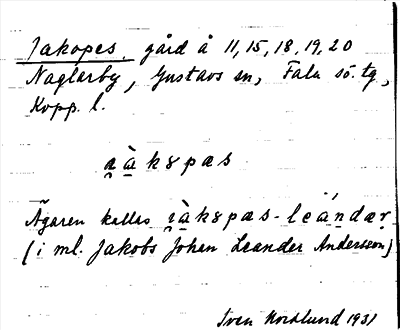 Jakopes, gård å 11, 15, 18, 19, 20
Naglarby, Gustavs sn, Falu sö. tg,
Kopp. l.
i̯àkȣpæs
Ägaren kallas i̯àkȣpæs-leándær
(i ml. Jakobs Johan Leander Andersson)
Sven Nordlund 1931